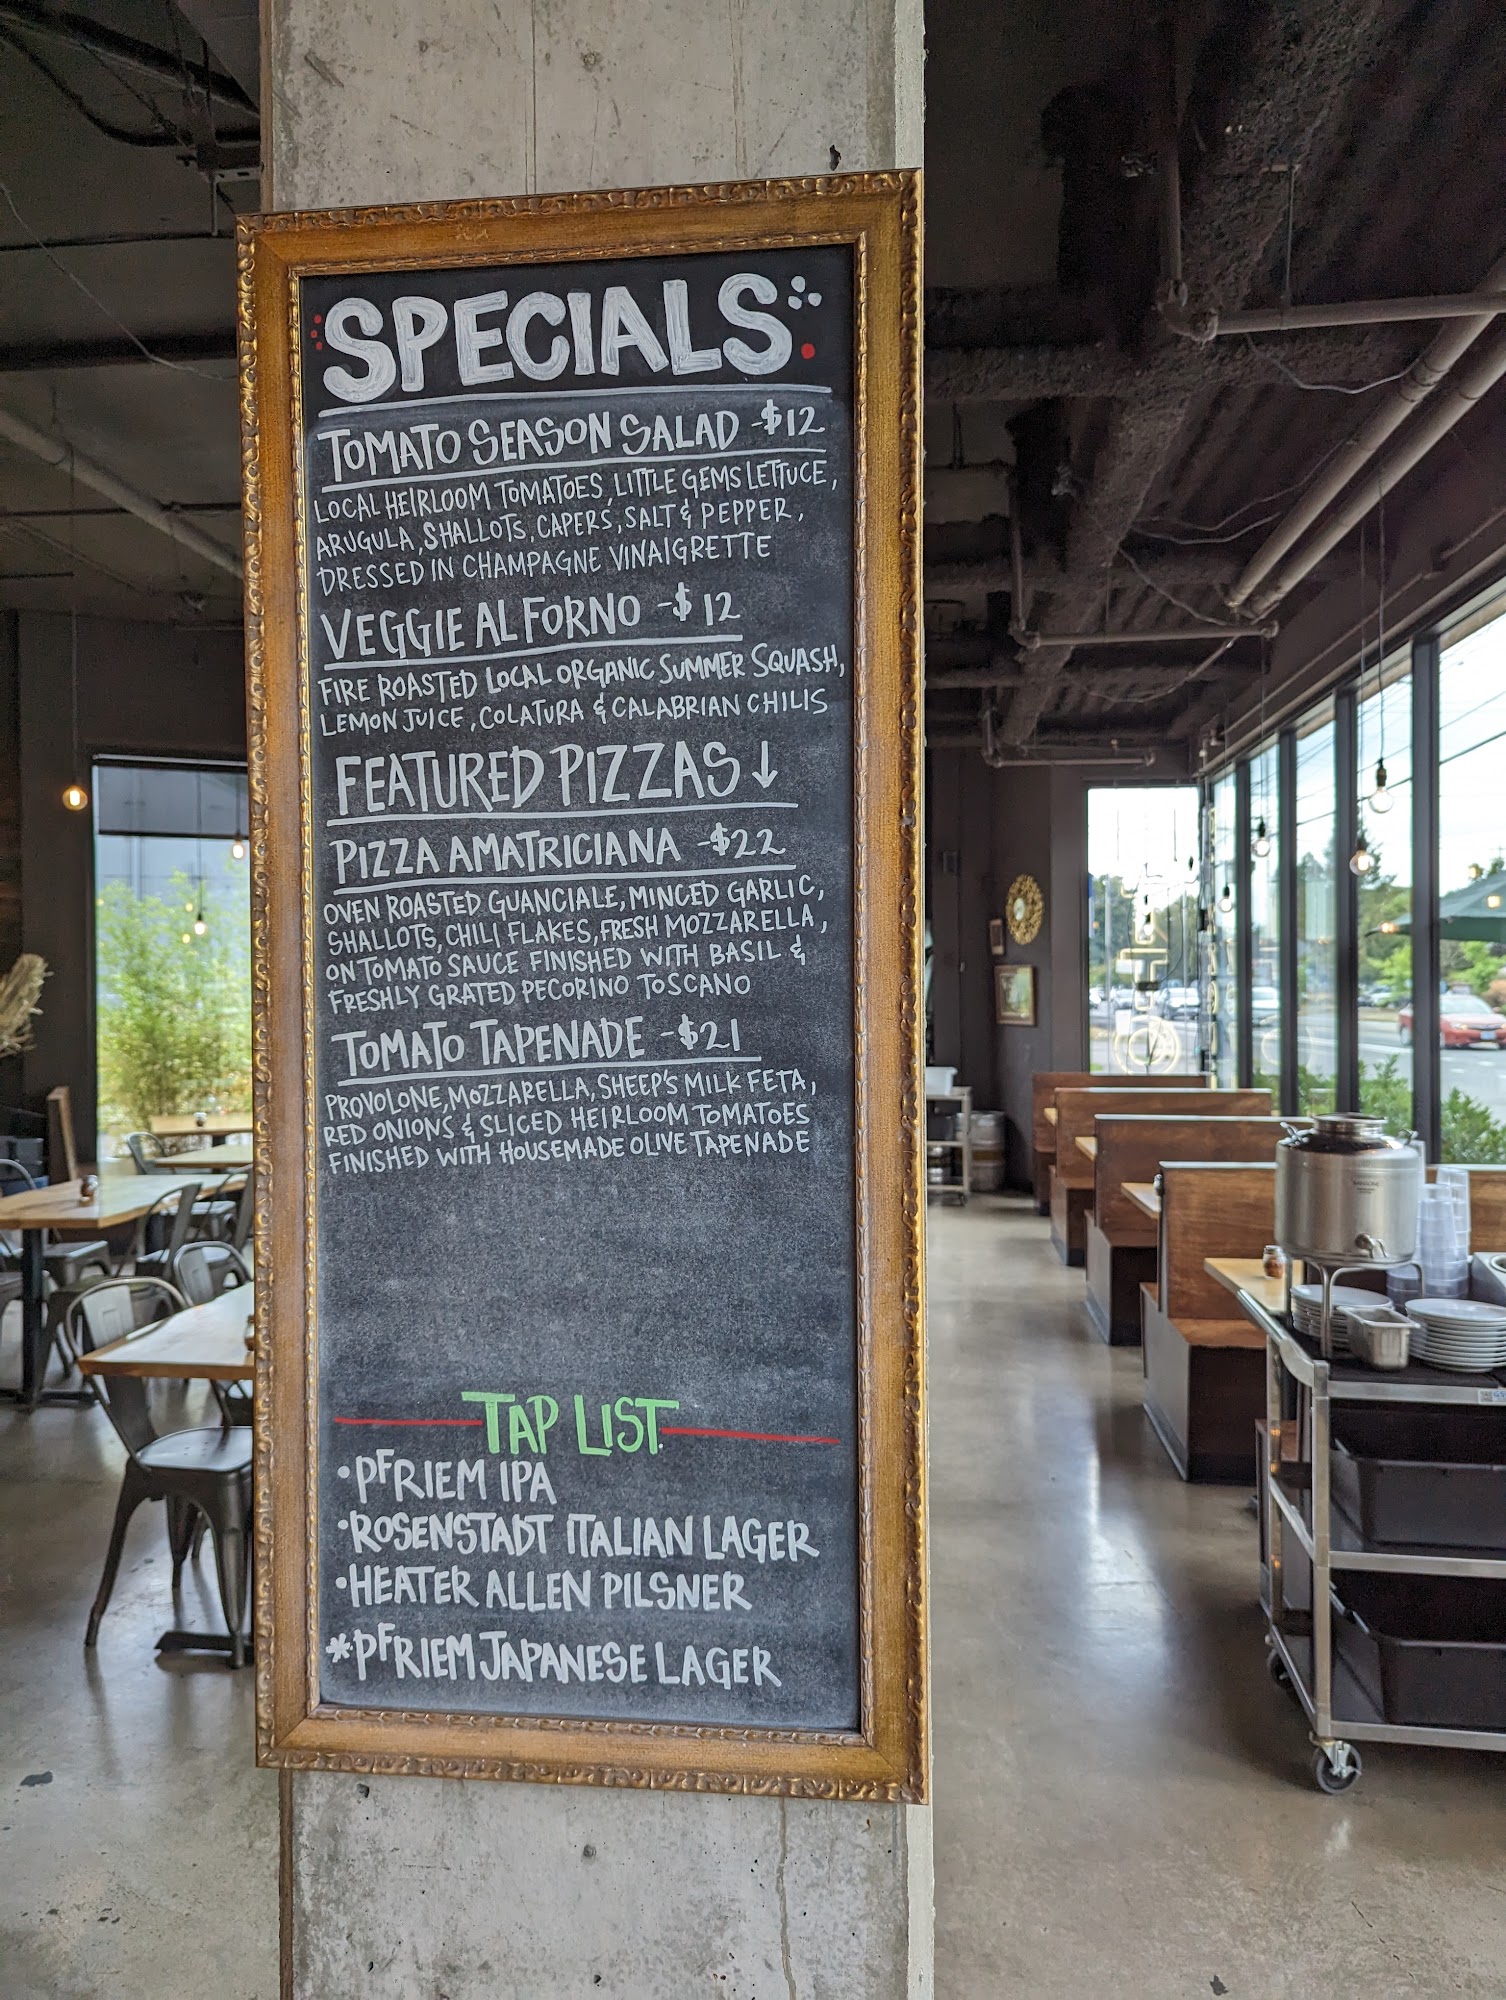 SPECIALS
TOMATO SEASON SALAD -$12
LOCAL HEIRLOOM TOMATOES, LITTLE GEMS LETTUCE,
ARUGULA, SHALLOTS, CAPERS, SALT & PEPPER,
DRESSED IN CHAMPAGNE VINAIGRETTE
VEGGIE AL FORNO -$12
FIRE ROASTED LOCAL ORGANIC SUMMER SQUASH,
LEMON JUICE, COLATURA & CALABRIAN CHILIS
FEATURED PIZZAS ↓
PIZZA AMATRICIANA -$22
OVEN ROASTED GUANCIALE, MINCED GARLIC,
SHALLOTS, CHILI FLAKES, FRESH MOZZARELLA,
ON TOMATO SAUCE FINISHED WITH BASIL &
FRESHLY GRATED PECORINO TOSCANO
TOMATO TAPENADE -$21
PROVOLONE, MOZZARELLA, SHEEP'S MILK FETA,
RED ONIONS & SLICED HEIRLOOM TOMATOES
FINISHED WITH HOUSEMADE OLIVE TAPENADE
TAP LIST
•PFRIEM IPA
•ROSENSTADT ITALIAN LAGER
•HEATER ALLEN PILSNER
*PFRIEM JAPANESE LAGER